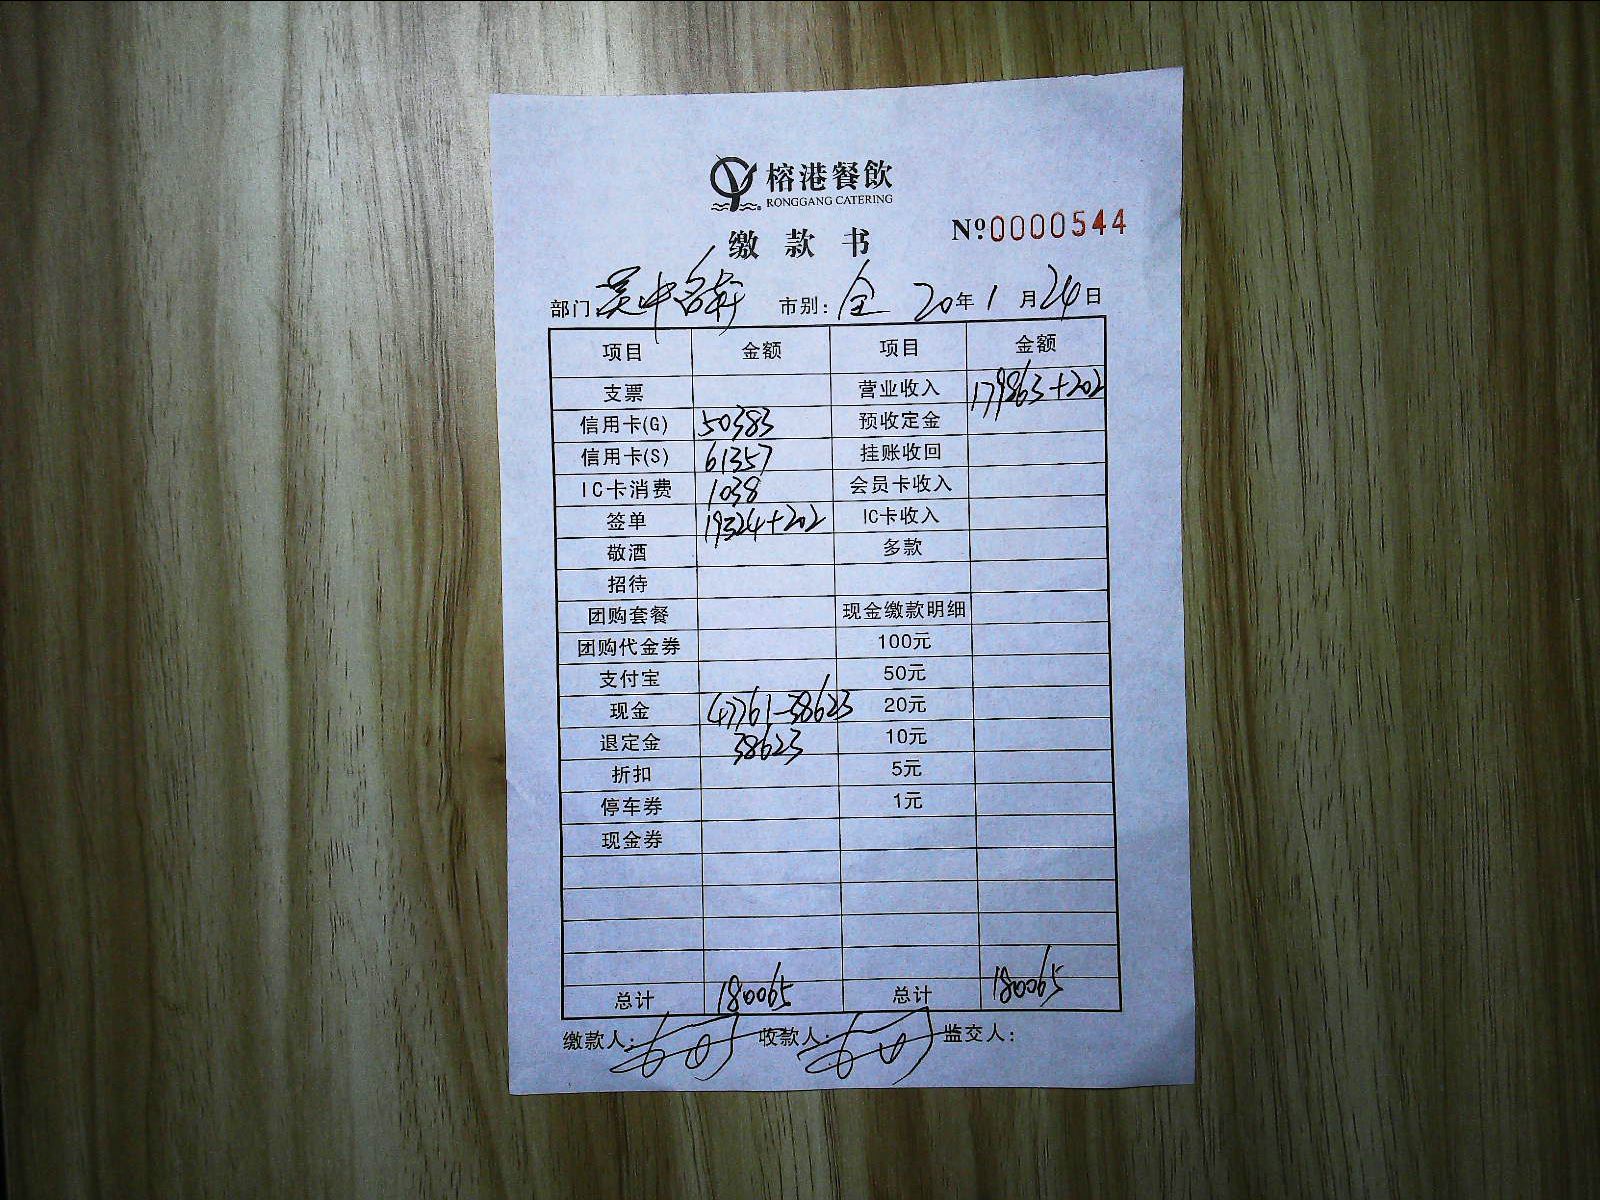 榕港餐飲
RONGGANG CATERING
缴款书
Nº0000544
部门 吴中名轩 市别: 全 20年1月24日
项目 金额 项目 金额
支票 营业收入 179863+202
信用卡(G) 50383 预收定金
信用卡(S) 61357 挂账收回
IC卡消费 1038 会员卡收入
签单 19324+202 IC卡收入
敬酒 多款
招待
团购套餐 现金缴款明细
团购代金券 100元
支付宝 50元
现金 47761-38623 20元
退定金 38623 10元
折扣 5元
停车券 1元
现金券
总计 180065 总计 180065
缴款人: 收款人: 监交人: